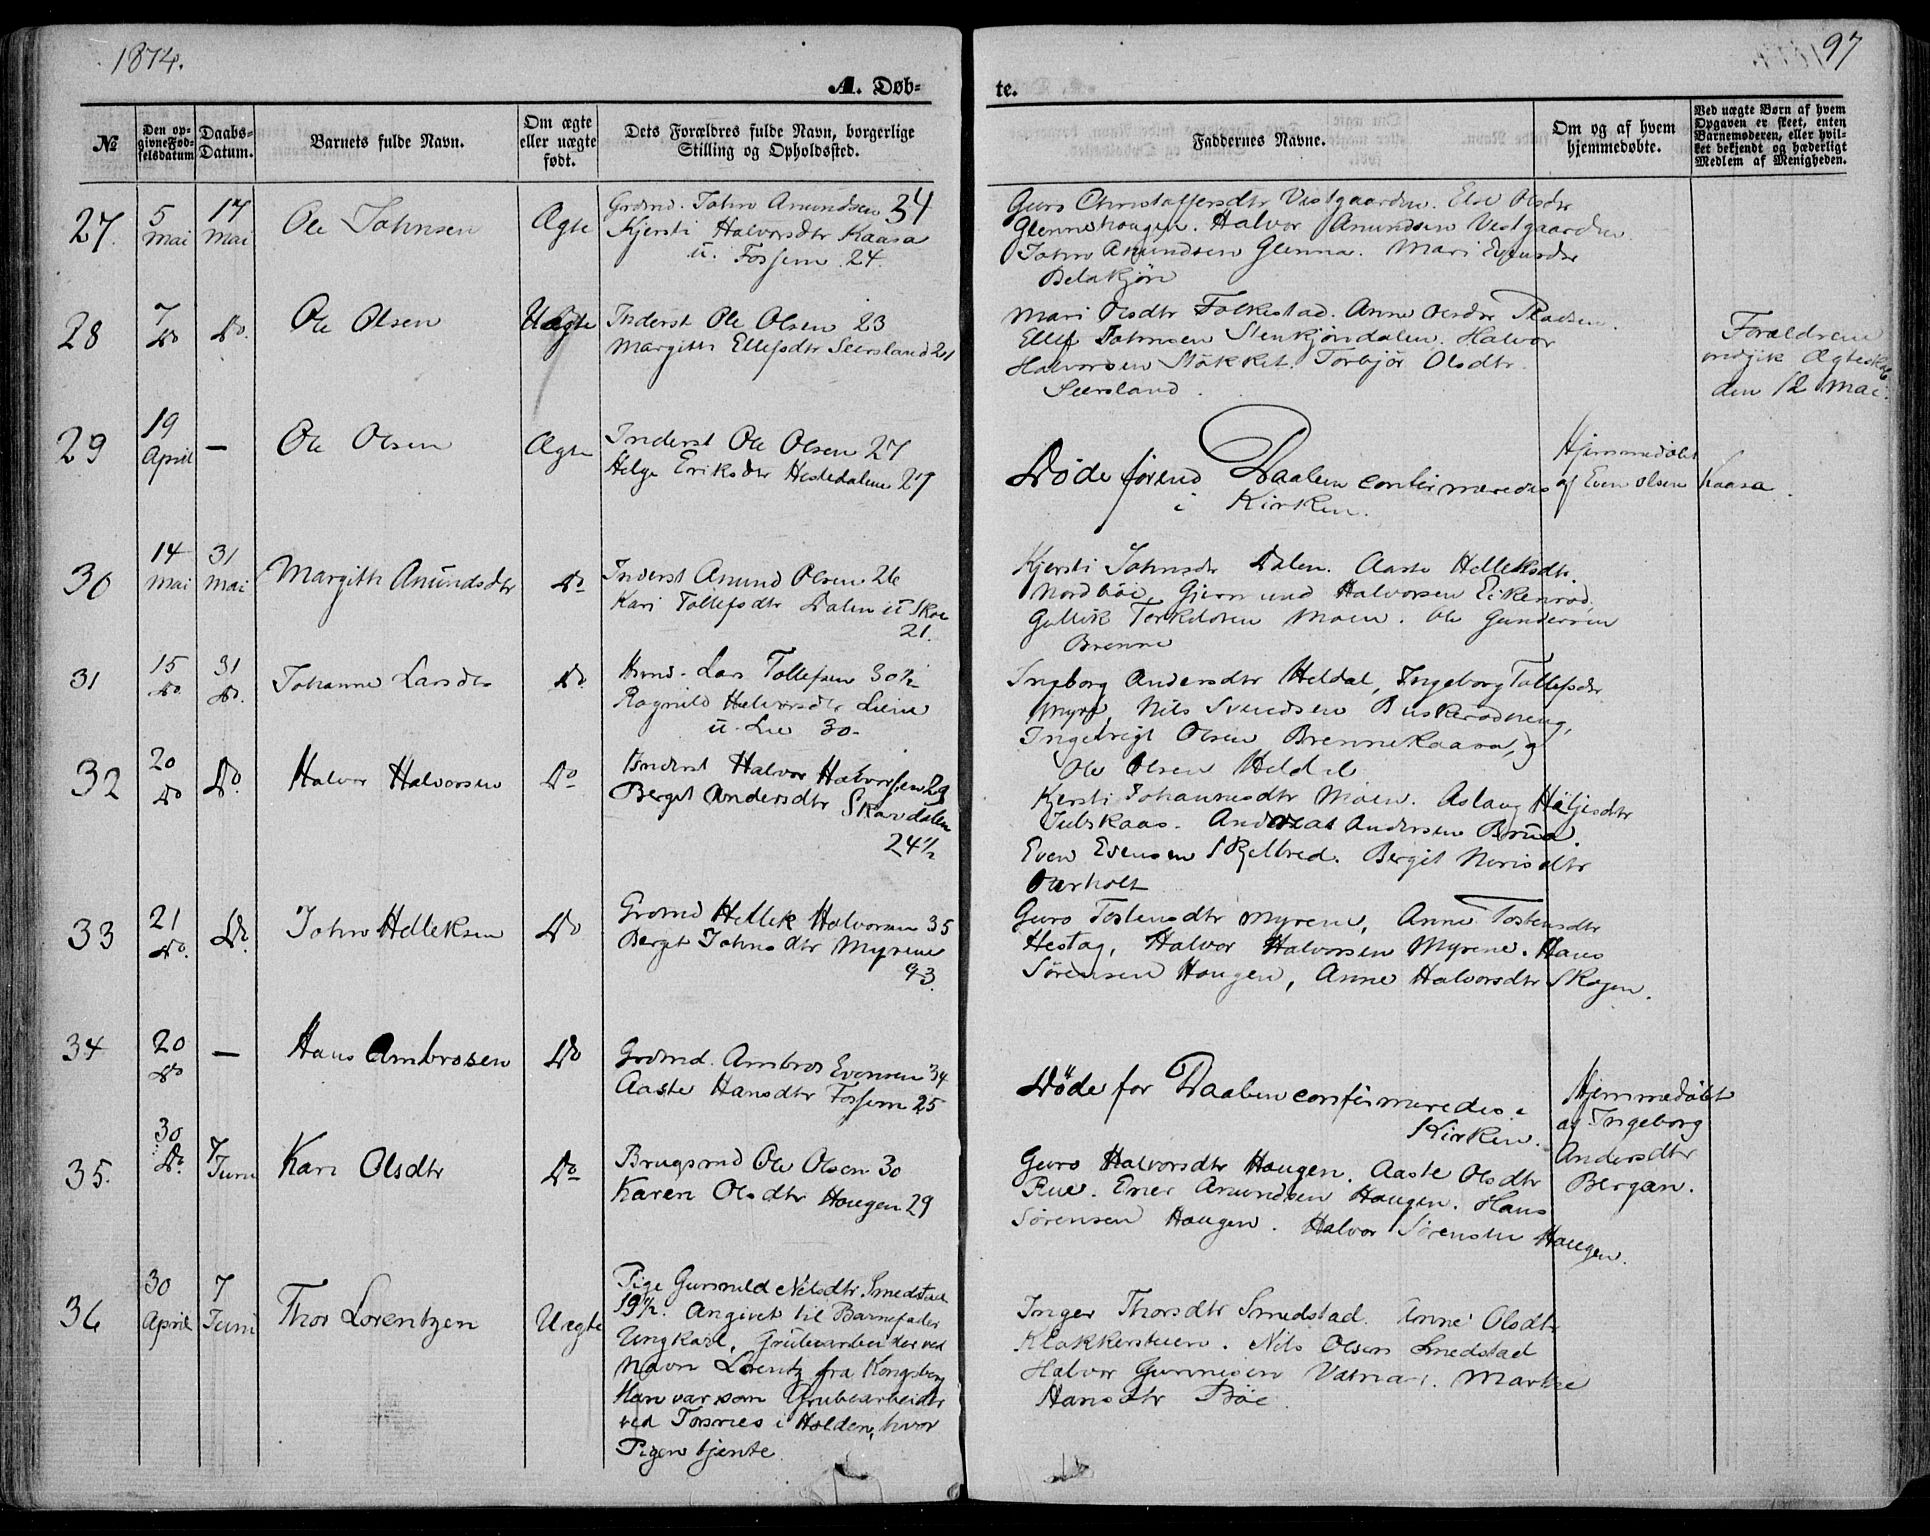 1874.
97
A. Døb-
te.
№
Den op-
givne Fød-
selsdatum
Daabs-
Datum.
Barnets fulde Navn.
Om ægte
eller uægte
født.
Dets Forældres fulde Navn, borgerlige
Stilling og Opholdssted.
Faddernes Navne.
Om og af hvem
hjemmedøbte.
Ved uægte Børn af hvem
Opgaven er skeet, enten
Barnemoderen, eller hvil-
ket bekjendt og hæderligt
Medlem af Menigheden.
27.
5
Mai
17
Mai
Ole Johnsen
Ægte
Grdmd. John Amundsen 34
Kjersti Halvorsdtr Kaasa
u. Fossem 24.
Guro Christoffersdtr Vestgaarden. Else Olsdtr
Glennehougen. Halvor Amundsen Vestgaarden
John Amundsen Glenna. Mari
28
7
Do
Do.
Ole Olsen
Uægte
Inderst Ole Olsen 23
Margith Ellefsdtr Seersland 21
Mari Olsdtr Folkestad. Anne Olsdtr Pladsen.
Ellef Johnsen Stenkjøndalen. Halvor
Halvorsen Stokket. Torbjør Olsdtr
Seersland.
Forældrene
indgik Ægteskab
den 12 Mai.
29
19
April
—
Ole Olsen
Ægte
Inderst Ole Olsen 27
Helge Eriksdtr Hestedalene 27
Døde førend Daaben confirmeredes
i Kirken.
Hjemmedøbt
af Even Olsen Kaasa.
30
14
Mai
31
Mai
Margith Anundsdtr
Do
Inderst Anund Olsen 26
Kari Tollefsdtr Dalen u Skoe
21.
Kjersti Johnsdtr Dalen. Aaste Helleksdtr.
Nordbøe, Gjermund Halvorsen Eikenrod,
Gullik Torkildsen Moen. Ole Gundersen
Brenne
31
15
Do
31
Do.
Johanne Larsdtr
Do
Hmd. Lars Tollefsen 30½
Ragnild Halvorsdtr Liene
u. Lie 30.
Ingeborg Andersdtr Heldal, Ingeborg Tollefsdtr
Myre, Nils Svendsen Buskerødneng,
Ingebrigt Olsen Brennekaasa, og
Ole Olsen Heldal
32
20
Do
Do.
Halvor Halvorsen
Do
Inderst Halvor Halvorsen 29
Berget Andersdtr Skardalen
24½
Kjersti Johannesdtr Moen. Aslaug Høljesdtr
Julskaas. Andreas Andersen Brua.
Even Evensen Skjelbred. Bergit Norisdtr
Aarholt
33
21
Do.
Do.
John Helleksen
Do
Grdmd Hellek Halvorsen 35
Berget Johnsdtr Myrene
43.
Guro Tostensdtr Myrene, Anne Tostensdtr
Hestag, Halvor Halvorsen Myrene. Hans
Sørensen Hougen, Anne Halvorsdtr Skogen.
34
20
Do
—
Hans Ambrosen
Do
Grdmd. Ambros Evensen 34
Aaste Hansdtr Fossem 25
Døde for Daaben confirmeredes i
Kirken.
Hjemmedøbt
af Ingeborg
Andersdtr
Bergan.
35.
30
Do.
7
Juni
Kari Olsdtr
Do
Brugsmd Ole Olsen 30
Karen Olsdtr Hougen 29
Guro Halvorsdtr Hougen. Aaste Olsdtr
Rue. Ener Amundsen Hougen. Hans
Sørensen Hougen. Halvor Sørensen Hougen.
36
30
April
7
Juni
Thor Lorentzen
Uægte
Pige Gunnild Nilsdtr Smedstad
19½. Angivet til Barnefader
Ungkarl, Grubearbeider ved
Navn Lorentz fra Kongsberg
Han var som Grubearbeider
ved Tosnes i Holden, hvor
Pigen tjente.
Inger Thorsdtr Smedstad. Anne Olsdtr
Klakkersteien. Nils Olsen Smedstad
Halvor Gunnisen Valnar. Marthe
Hansdtr Bøe.